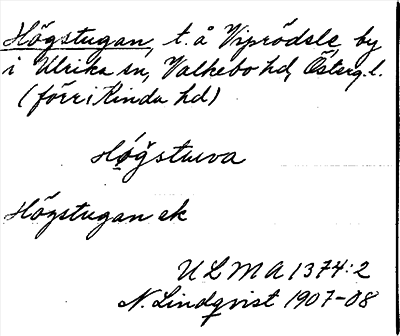 Högstugan, t. å Viprödsle, by
i Ulrika sn, Valkebo hd, Österg. l.
(förr i Kinda hd)
Högstuva
Högstugan ek
ULMA 1374:2
N. Lindqvist 1907-08